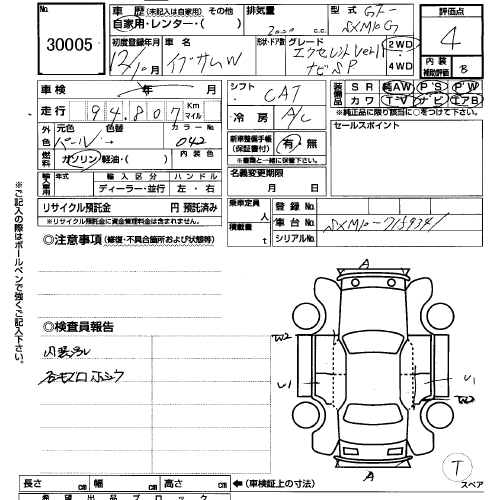 No.
30005
車歴 (未記入は自家用) その他
自家用・レンタカー・( )
排気量
2000 c.c.
型式 GF-
SXM10G
評価点
4
内装
補助評価 B
初度登録年月
12/10
車名
イプサムW
形状・ドア数
グレード
エクセレントVer11
ナビSP
2WD
4WD
車検 年 月
シフト
CAT
装備品
SR 純AW PS PW
カワ TV ナビ エアB
※純正品に限り該当に○をつけて下さい
走行 94,807 Km マイル
冷房
A/C
セールスポイント
外色 元色 色替 カラーNo.
パール 042
新車整備手帳
(保証書付)
有・無
※書類と一緒に保管下さい。
燃料 ガソリン・軽油・( ) 内装色
名義変更期限
月 日
輸入車用 年式 輸入区分 ハンドル
ディーラー・並行 左・右
リサイクル預託金 円 預託済み
※リサイクル預託金に資金管理料金は含まれません。
乗車定員 人
積載量 t
登録No.
車台No. SXM10-7159341
シリアルNo.
◎注意事項 (修復・不具合箇所および状態等)
※ご記入の際はボールペンで強くご記入下さい。
◎検査員報告
内装ヨゴレ
A
W2
U1
U1
W2
A
T
スペア
長さ cm 幅 cm 高さ cm ←(車検証上の寸法)
希望出品ブロック